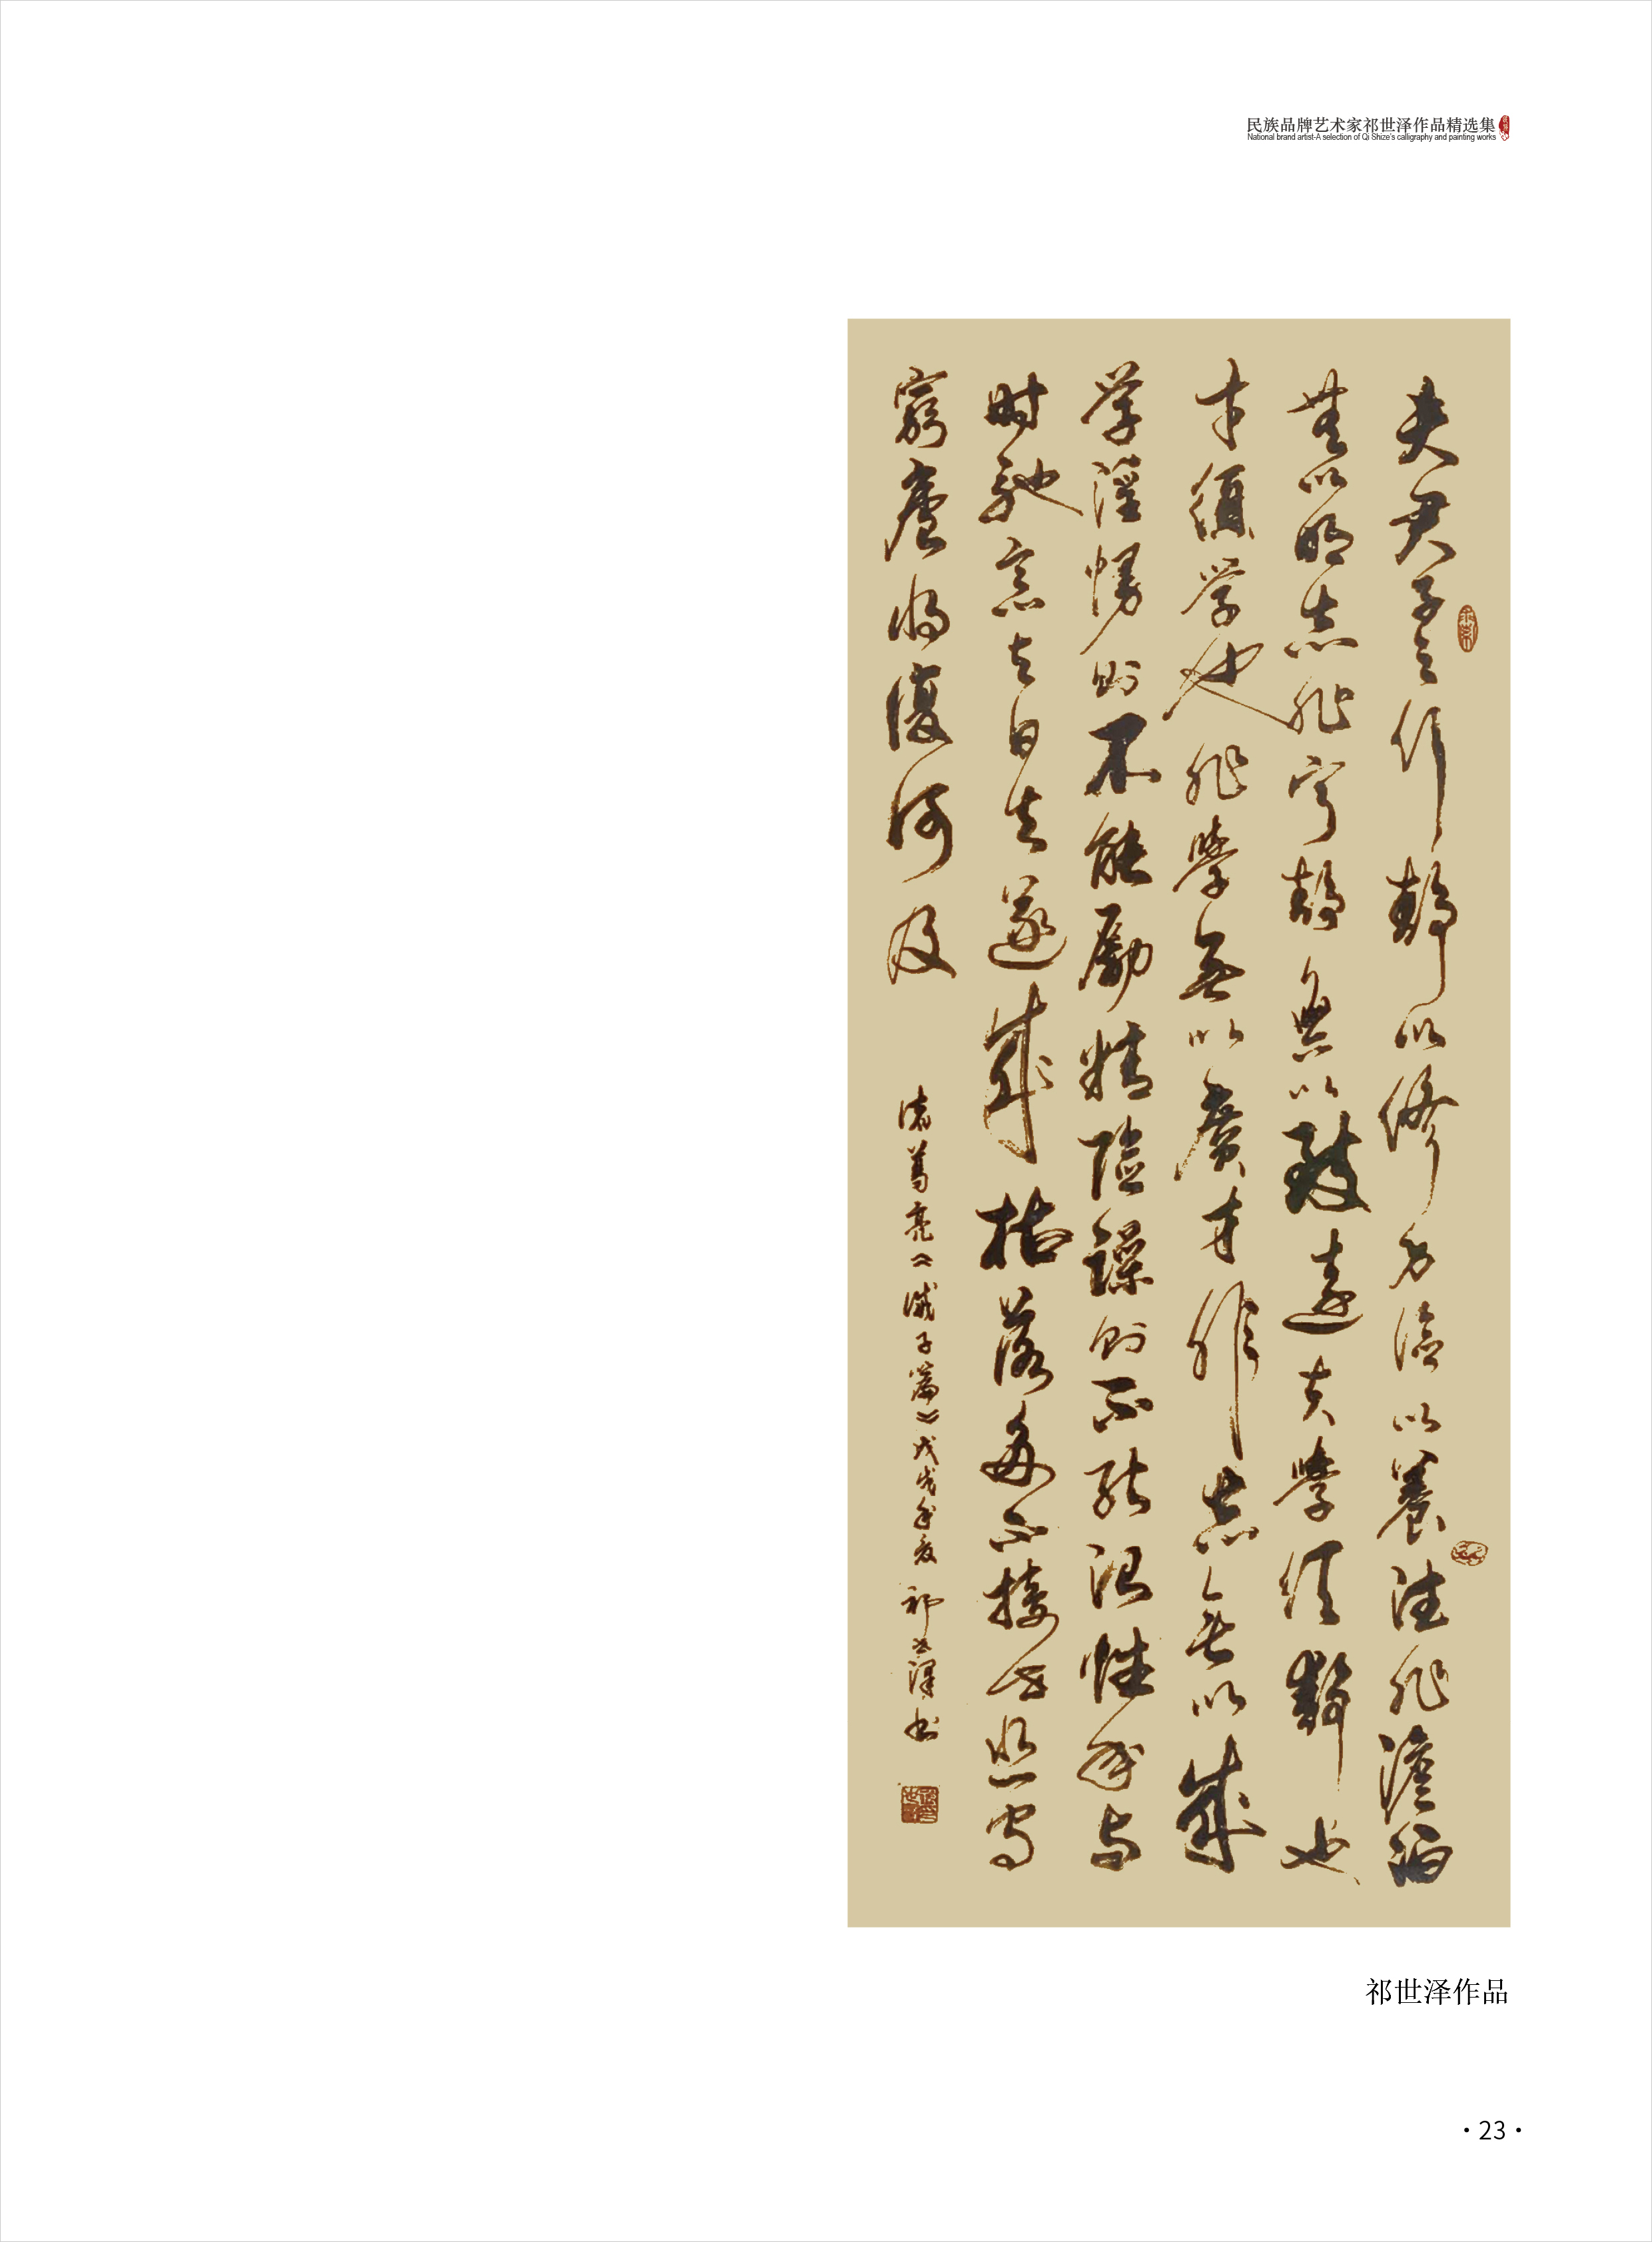 民族品牌艺术家祁世泽作品精选集
National brand artist-A selection of Qi Shize's calligraphy and painting works
夫君子之行靜以修身儉以養德非澹泊
無以明志非宁靜無以致遠夫學須靜也
才須學也非學無以廣才非志無以成
学淫慢则不能勵精险躁则不能治性年与
时馳意与日去遂成枯落多不接世悲守
窮廬将復何及
诸葛亮《诫子篇》戊戌年夏 祁世泽书
祁世泽作品
·23·